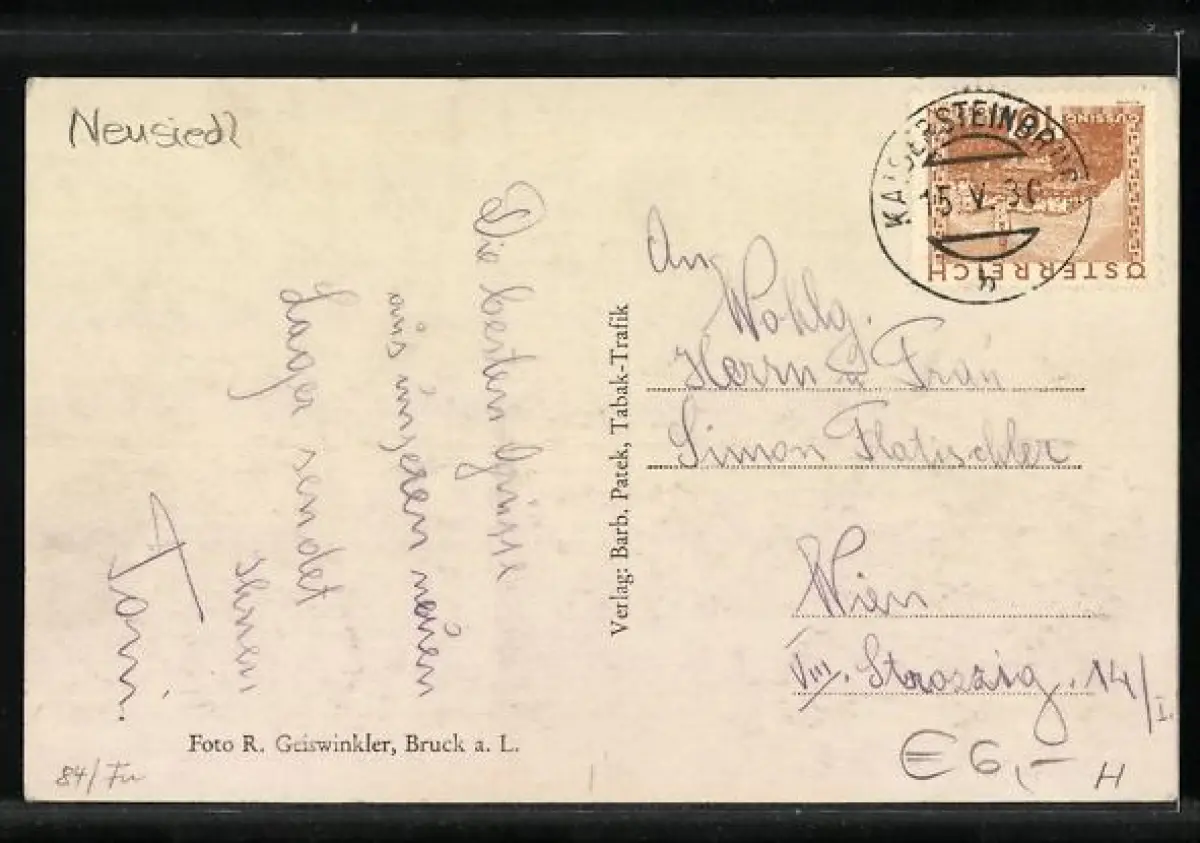 Neusiedl
Die besten Grüsse
aus unseren neuen
Lager sendet
Ihnen
Toni.
Foto R. Geiswinkler, Bruck a. L.
84/Fu
Verlag: Barb. Patek, Tabak-Trafik
KAISERSTEINBRUCH
15 V. 36
b
10
GÜSSING
ÖSTERREICH
An
Wohlg.
Herrn u Frau
Simon Flatischler
Wien
VIII. Strozzig. 14/I.
€ 6,-
H